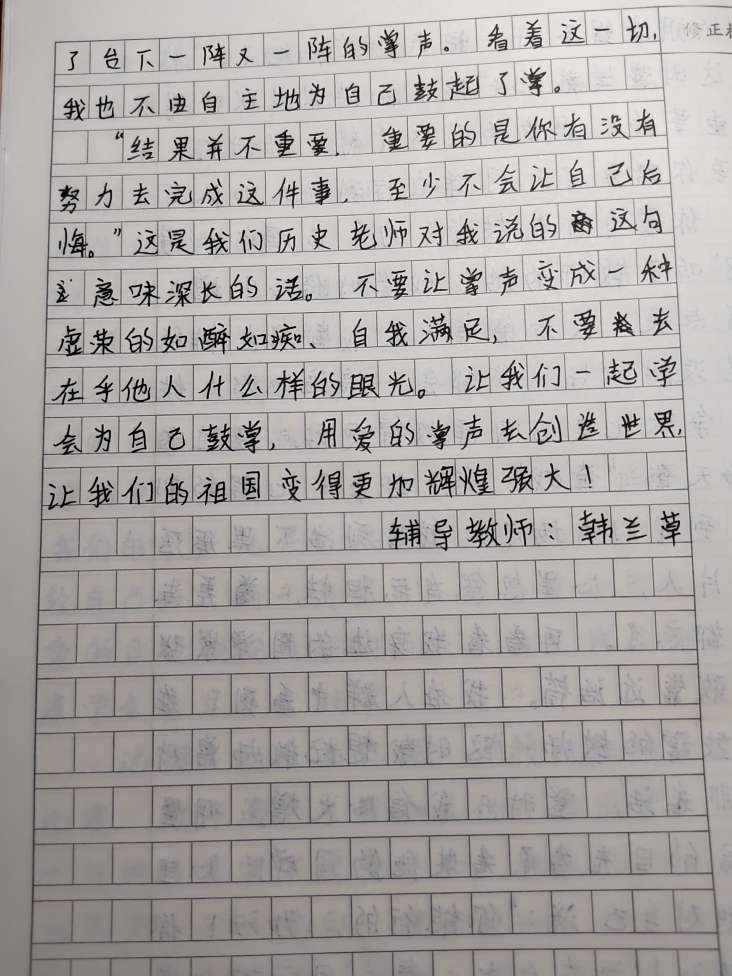 修正
了台下一阵又一阵的掌声。看着这一切,
我也不由自主地为自己鼓起了掌。
“结果并不重要, 重要的是你有没有
努力去完成这件事, 至少不会让自己后
悔。”这是我们历史老师对我说的 这句
意味深长的话。不要让掌声变成一种
虚荣的如醉如痴、自我满足, 不要 去
在乎他人什么样的眼光。让我们一起学
会为自己鼓掌, 用爱的掌声去创造世界,
让我们的祖国变得更加辉煌强大!
辅导教师: 韩兰草